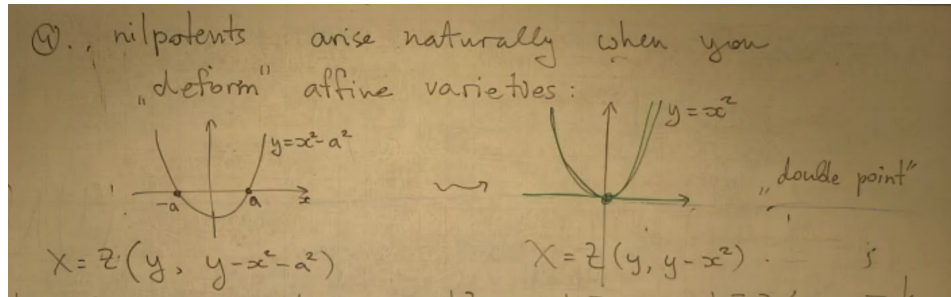 ④., nilpotents arise naturally when you
„deform" affine varieties:
y=x²-a²
y=x²
-a a x
„double point"
X=Z(y, y-x²-a²)
X=Z(y, y-x²).